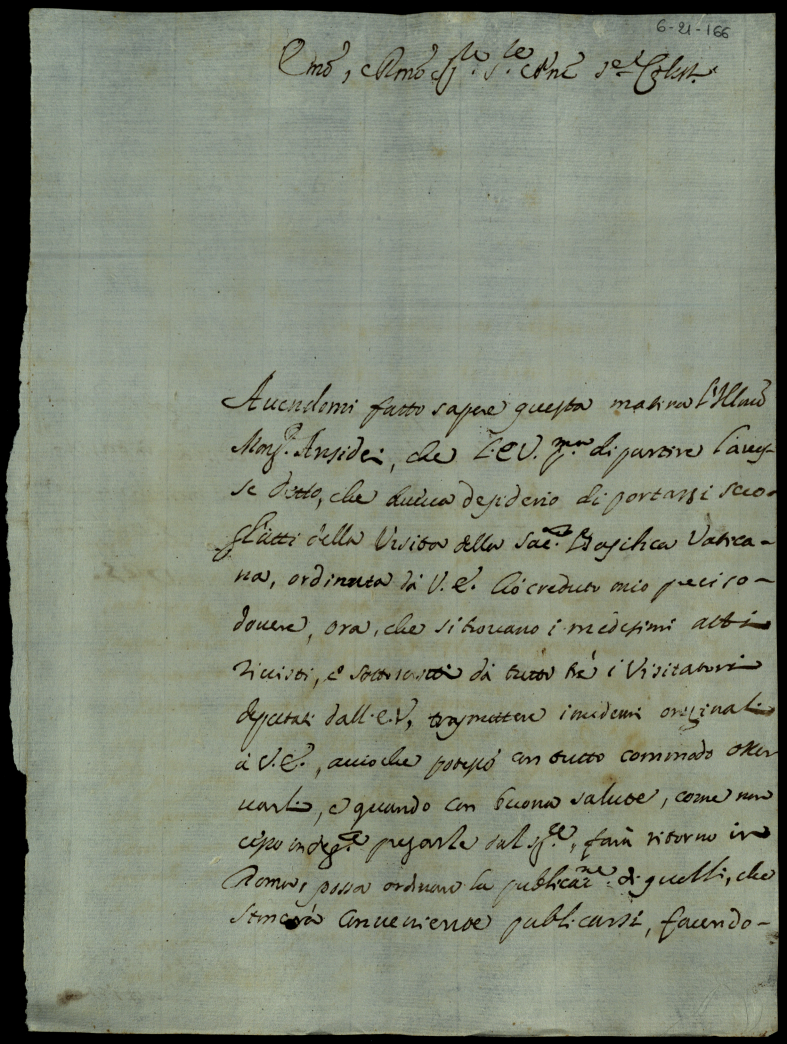 6-21-166
Emõ, e Rmõ Sig.re Sig.re e Pne Sig.re Colmo
Avendomi fatto sapere questa matina l'Illmõ
Mons.r Ansidei, che l'E.V. p.ma di partire l'aves-
se detto, che aveva desiderio di portarsi seco
gl'atti della Visita della Sac. Basilica Vatica-
na, ordinata da V.E. hò creduto mio preciso
dovere, ora, che si trovano i medesimi atti
rivisti, e sottoscritti da tutti trè i Visitatori
deputati dall'E.V, trasmettere i medemi originali
à V.E., acciò che possa con tutto commodo osser
varli, e quando con buona salute, come non
cesso indeg.te pregarle dal Sig.re, farà ritorno in
Roma, possa ordinare la publicaz.ne di quelli, che
stimarà conveniente publicarsi, facendo-